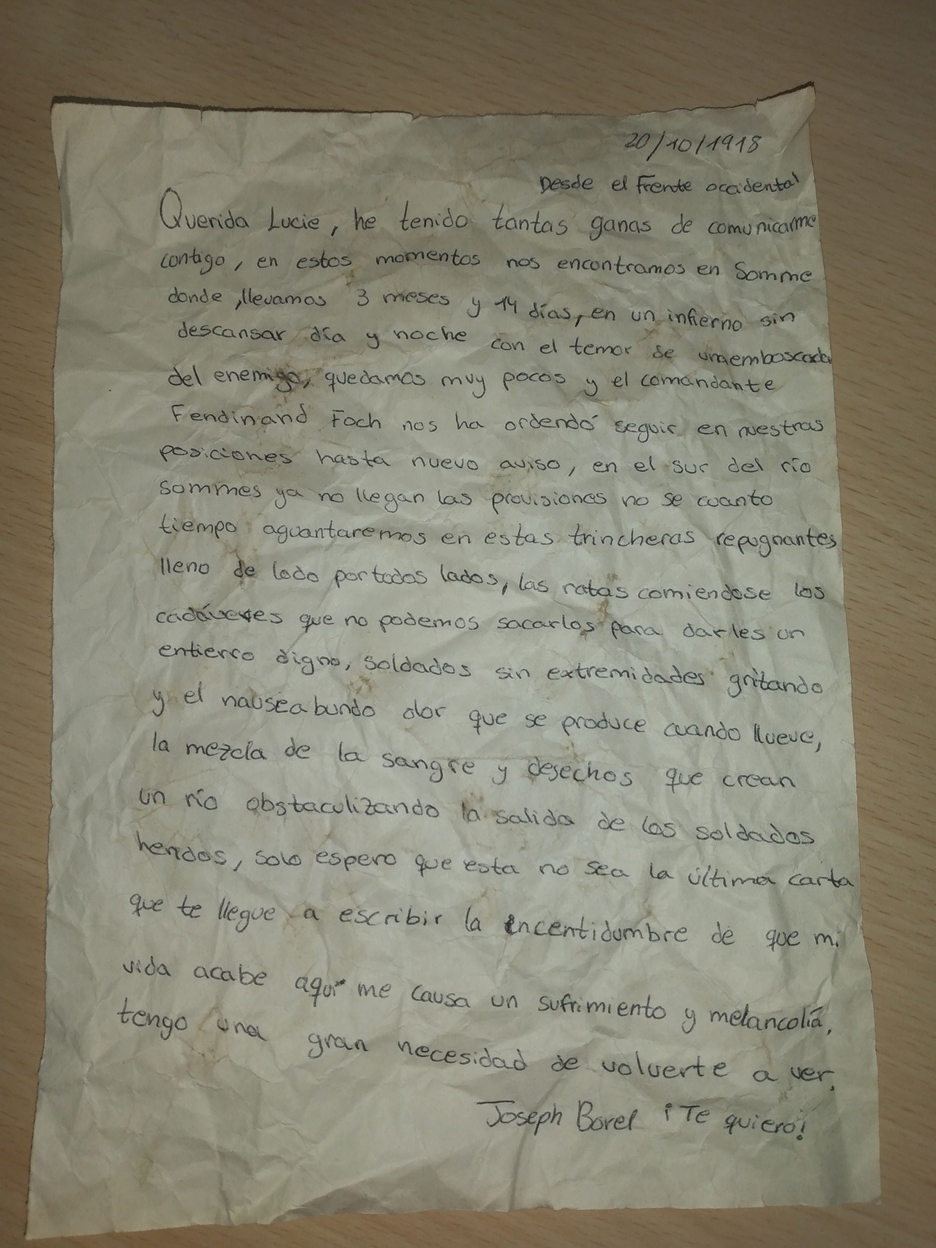 20/10/1918
Desde el frente occidental
Querida Lucie, he tenido tantas ganas de comunicarme
contigo, en estos momentos nos encontramos en Somme
donde, llevamos 3 meses y 14 días, en un infierno sin
descansar día y noche con el temor de una emboscada
del enemigo, quedamos muy pocos y el comandante
Ferdinand Foch nos ha ordendó seguir en nuestras
posiciones hasta nuevo aviso, en el sur del río
Sommes ya no llegan las provisiones no se cuanto
tiempo aguantaremos en estas trincheras repugnantes
lleno de lodo por todos lados, las ratas comiendose los
cadáveres que no podemos sacarlos para darles un
entierro digno, soldados sin extremidades gritando
y el nauseabundo olor que se produce cuando llueve,
la mezcla de la sangre y desechos que crean
un río obstaculizando la salida de los soldados
heridos, solo espero que esta no sea la última carta
que te llegue a escribir la incentidumbre de que mi
vida acabe aquí me causa un sufrimiento y melancoliá,
tengo una gran necesidad de volverte a ver.
Joseph Borel ¡Te quiero!